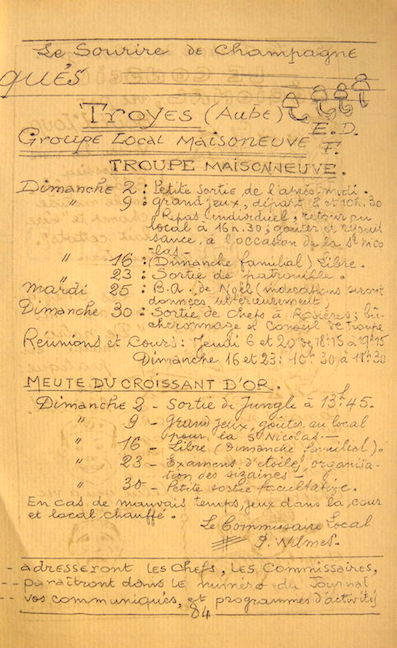 Le Sourire de Champagne
qués
Troyes (Aube)
E. D.
F.
Groupe Local Maisoneuve
TROUPE MAISONNEUVE.
Dimanche 2 : Petite sortie de l'après-midi.
" 9 : grand jeux, départ 8 et 10h.30
Repas individuel, retour au
local à 16h.30; goûter et réjouis
sance, à l'occasion de la St Nico
las-
" 16 : (Dimanche familial) Libre.
" 23 : Sortie de patrouille.
Mardi 25 : B.A. de Noël (indications seront
données ultérieurement)
Dimanche 30 : Sortie de Chefs à Rosières; bû-
cheronnage et Conseil de Troupe
Réunions et Cours: Jeudi 6 et 20 de 18h15 à 19h15
Dimanche 16 et 23: 10h30 à 11h30
MEUTE DU CROISSANT D'OR.
Dimanche 2 - Sortie de Jungle à 13h45.
" 9 - Grand Jeux, goûter au local
pour la St Nicolas-
" 16 - Libre (Dimanche familial).
" 23 - Examens d'étoiles, organisa-
tion des sizaines -
" 30 - Petite sortie facultative.
En cas de mauvais temps, jeux dans la cour
et local chauffé.
Le Commissaire Local
J. Wilmes.
- adresseront les Chefs, les Commissaires,
-- paraîtront dans le numéro du Journal
-- vos communiqués, et programmes d'activité
84